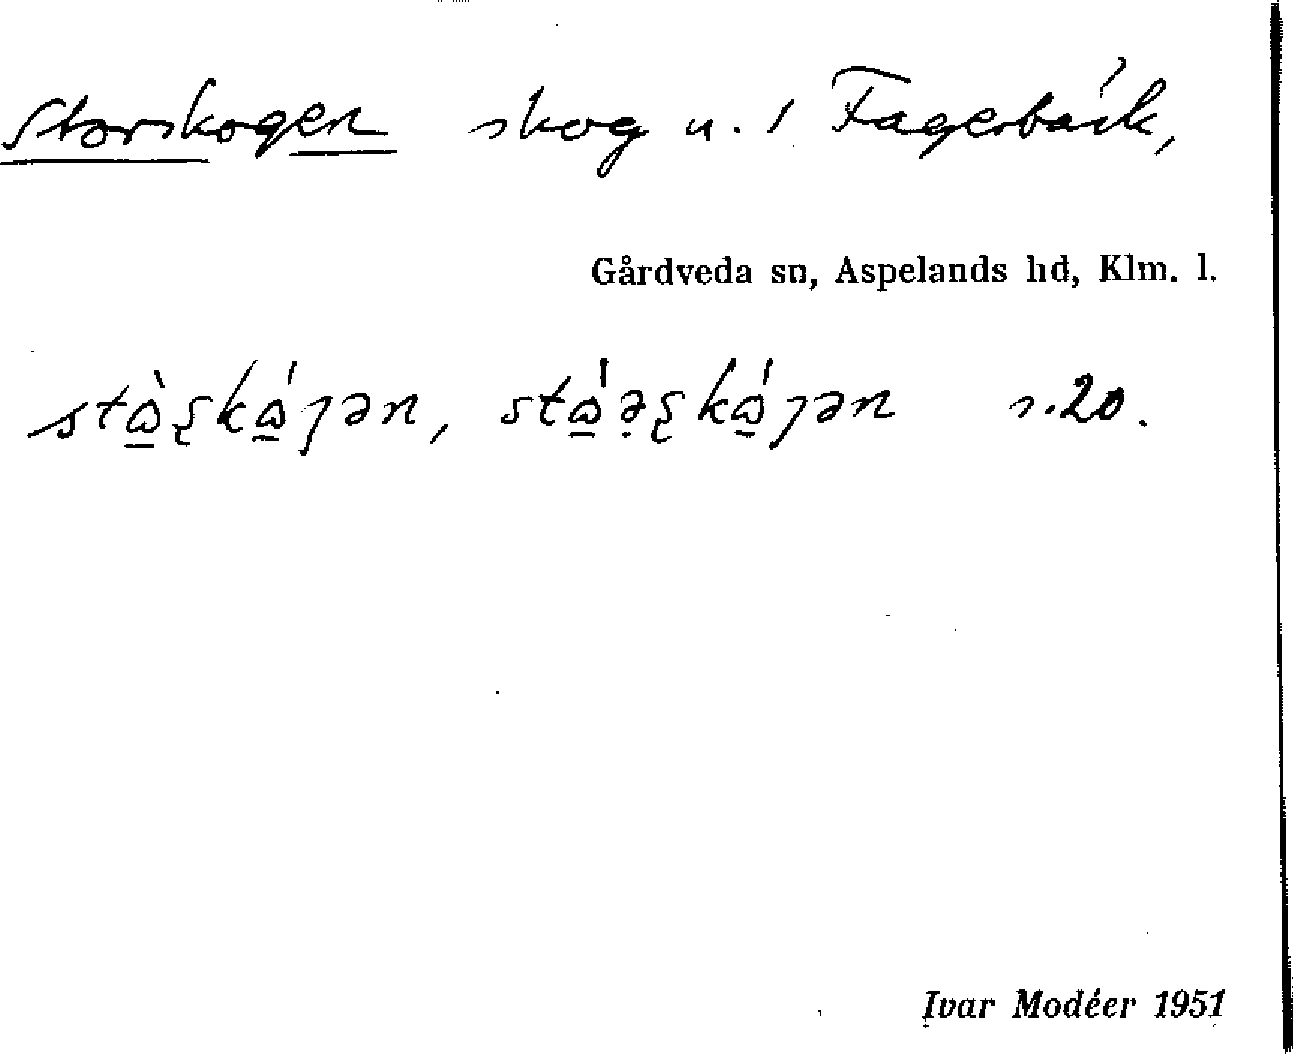 Storskogen skog u. 1 Fagerbäck,
Gårdveda sn, Aspelands hd, Klm. l.
s.20.
Ivar Modéer 1951